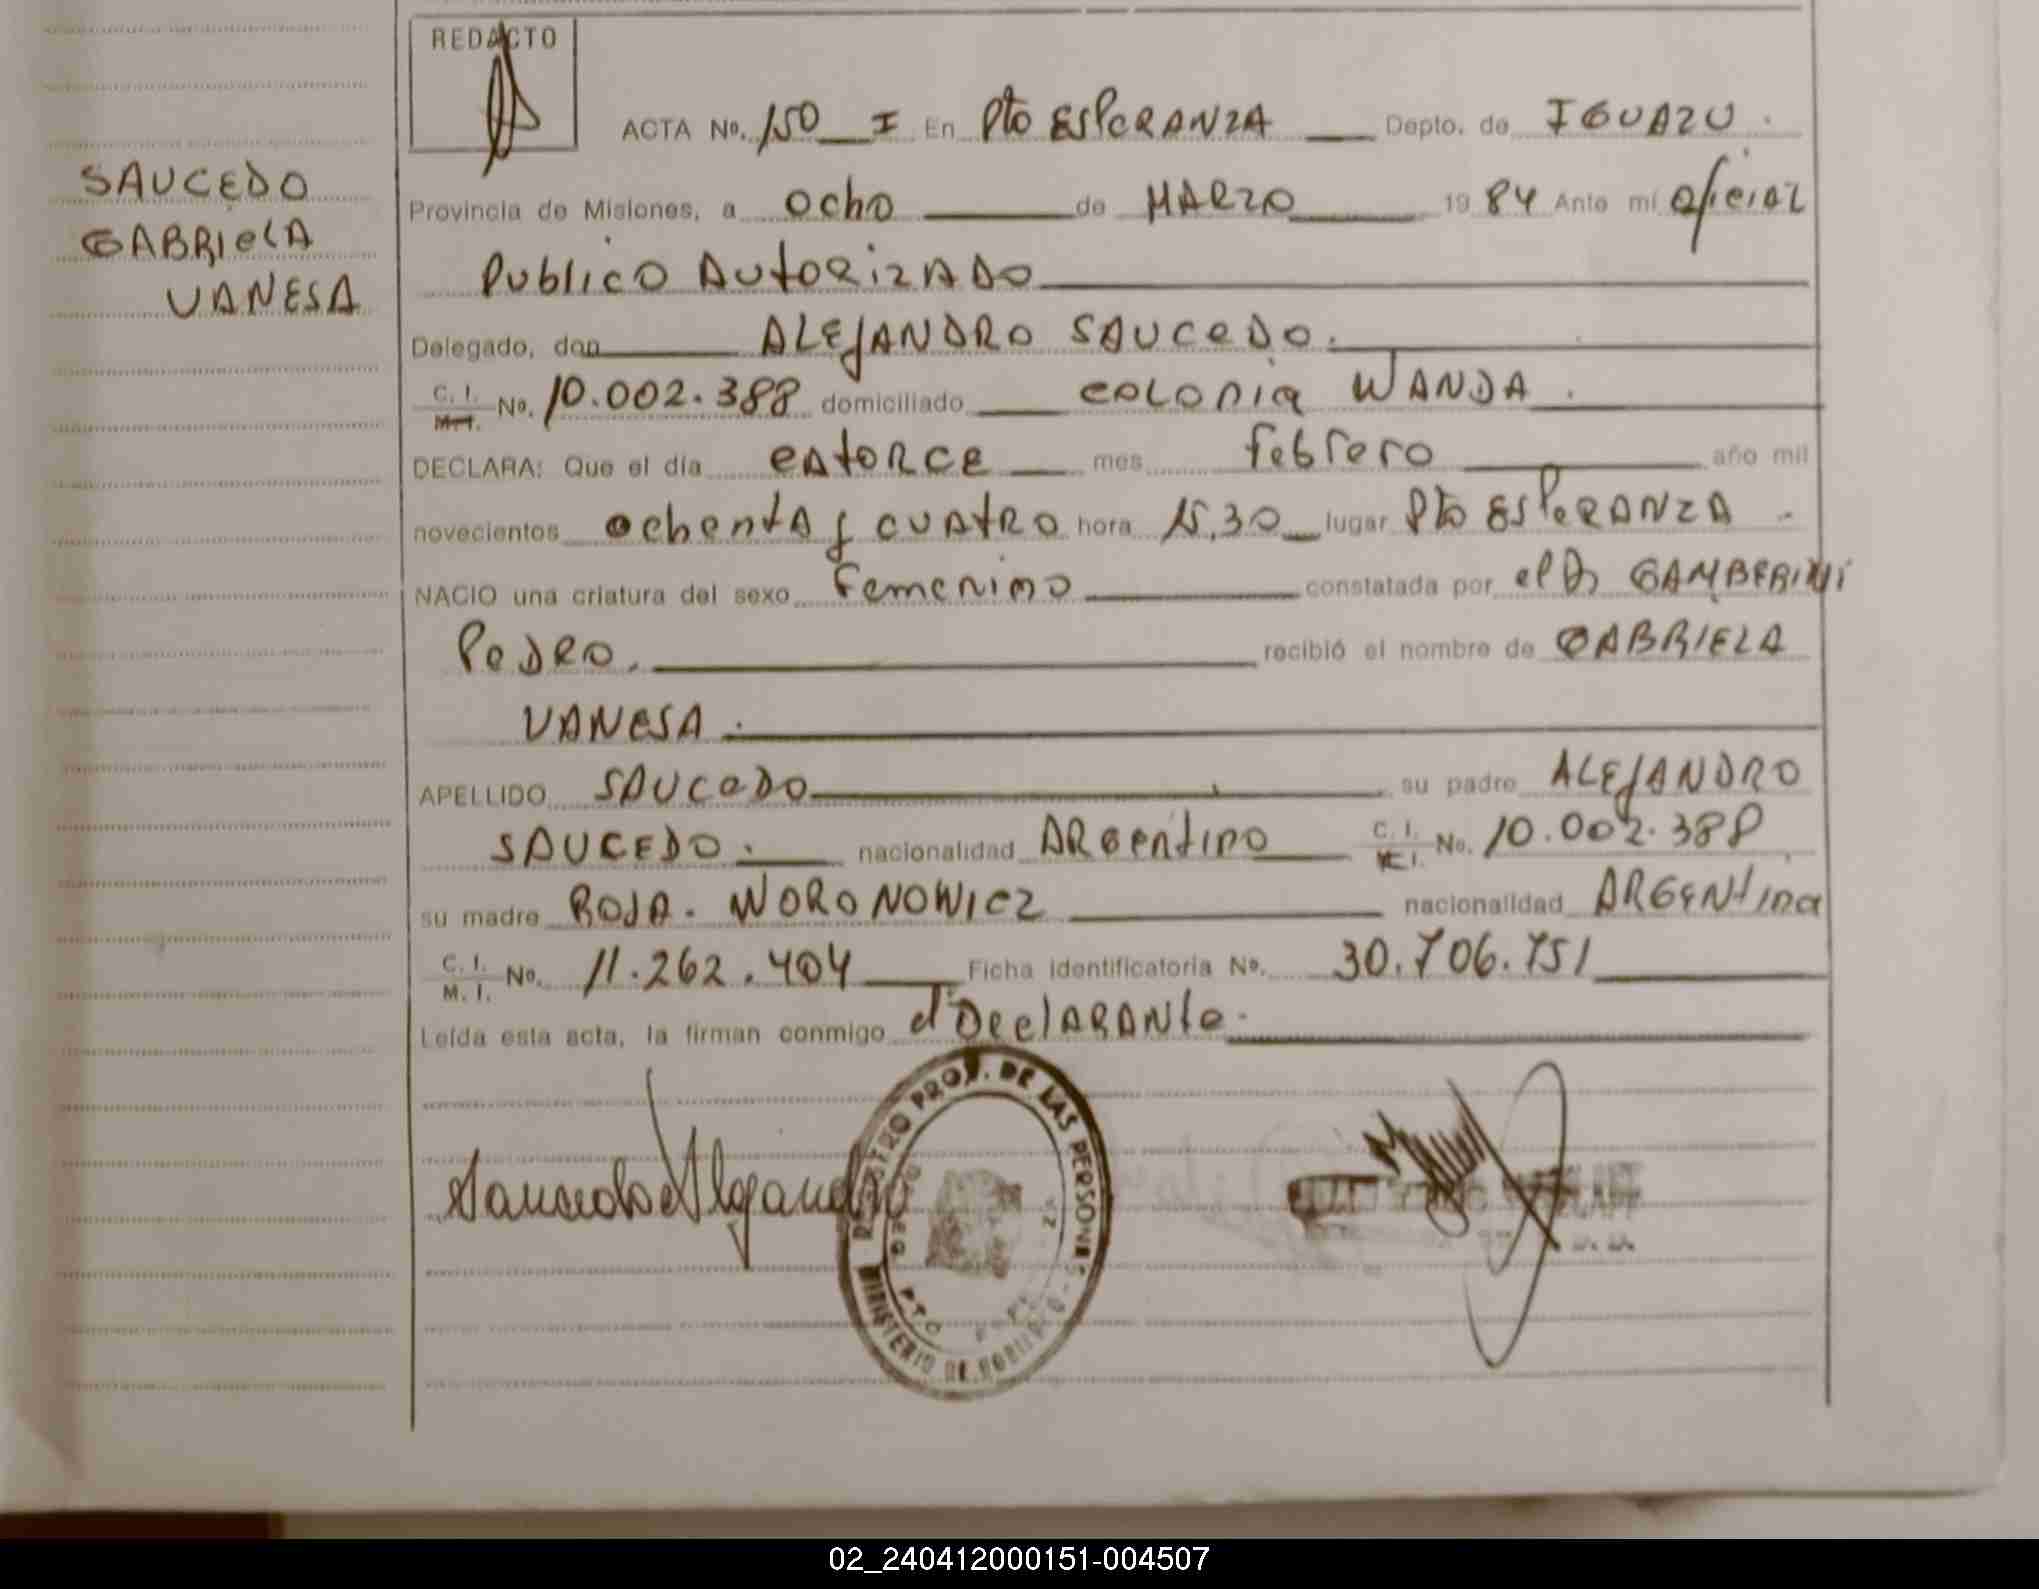 REDACTO
ACTA No. 150 I En Pto ESPERANZA Depto. de IGUAZU.
SAUCEDO
GABRIELA
VANESA
Provincia de Misiones, a ocho de MARZO 1984 Ante mí oficial
PUBLICO AUTORIZADO
Delegado, don ALEJANDRO SAUCEDO.
C. I. M. I. No. 10.002.388 domiciliado COLONIA WANDA.
DECLARA: Que el día CATORCE mes febrero año mil
novecientos ochenta y CUATRO hora 15,30 lugar Pto ESPERANZA.
NACIO una criatura del sexo Femenino constatada por el Dr GAMBERINI
PEDRO. recibió el nombre de GABRIELA
VANESA.
APELLIDO SAUCEDO su padre ALEJANDRO
SAUCEDO. nacionalidad ARGENTINO C. I. M. I. No. 10.002.388
su madre ROSA. WORONOWICZ nacionalidad ARGENTINA
C. I. M. I. No. 11.262.404 Ficha identificatoria No. 30.706.751
Leída esta acta, la firman conmigo el DECLARANTE.
Saucedo Alejandro
REGISTRO PROV. DE LAS PERSONAS
MINISTERIO DE GOBIERNO
PTO
02_240412000151-004507